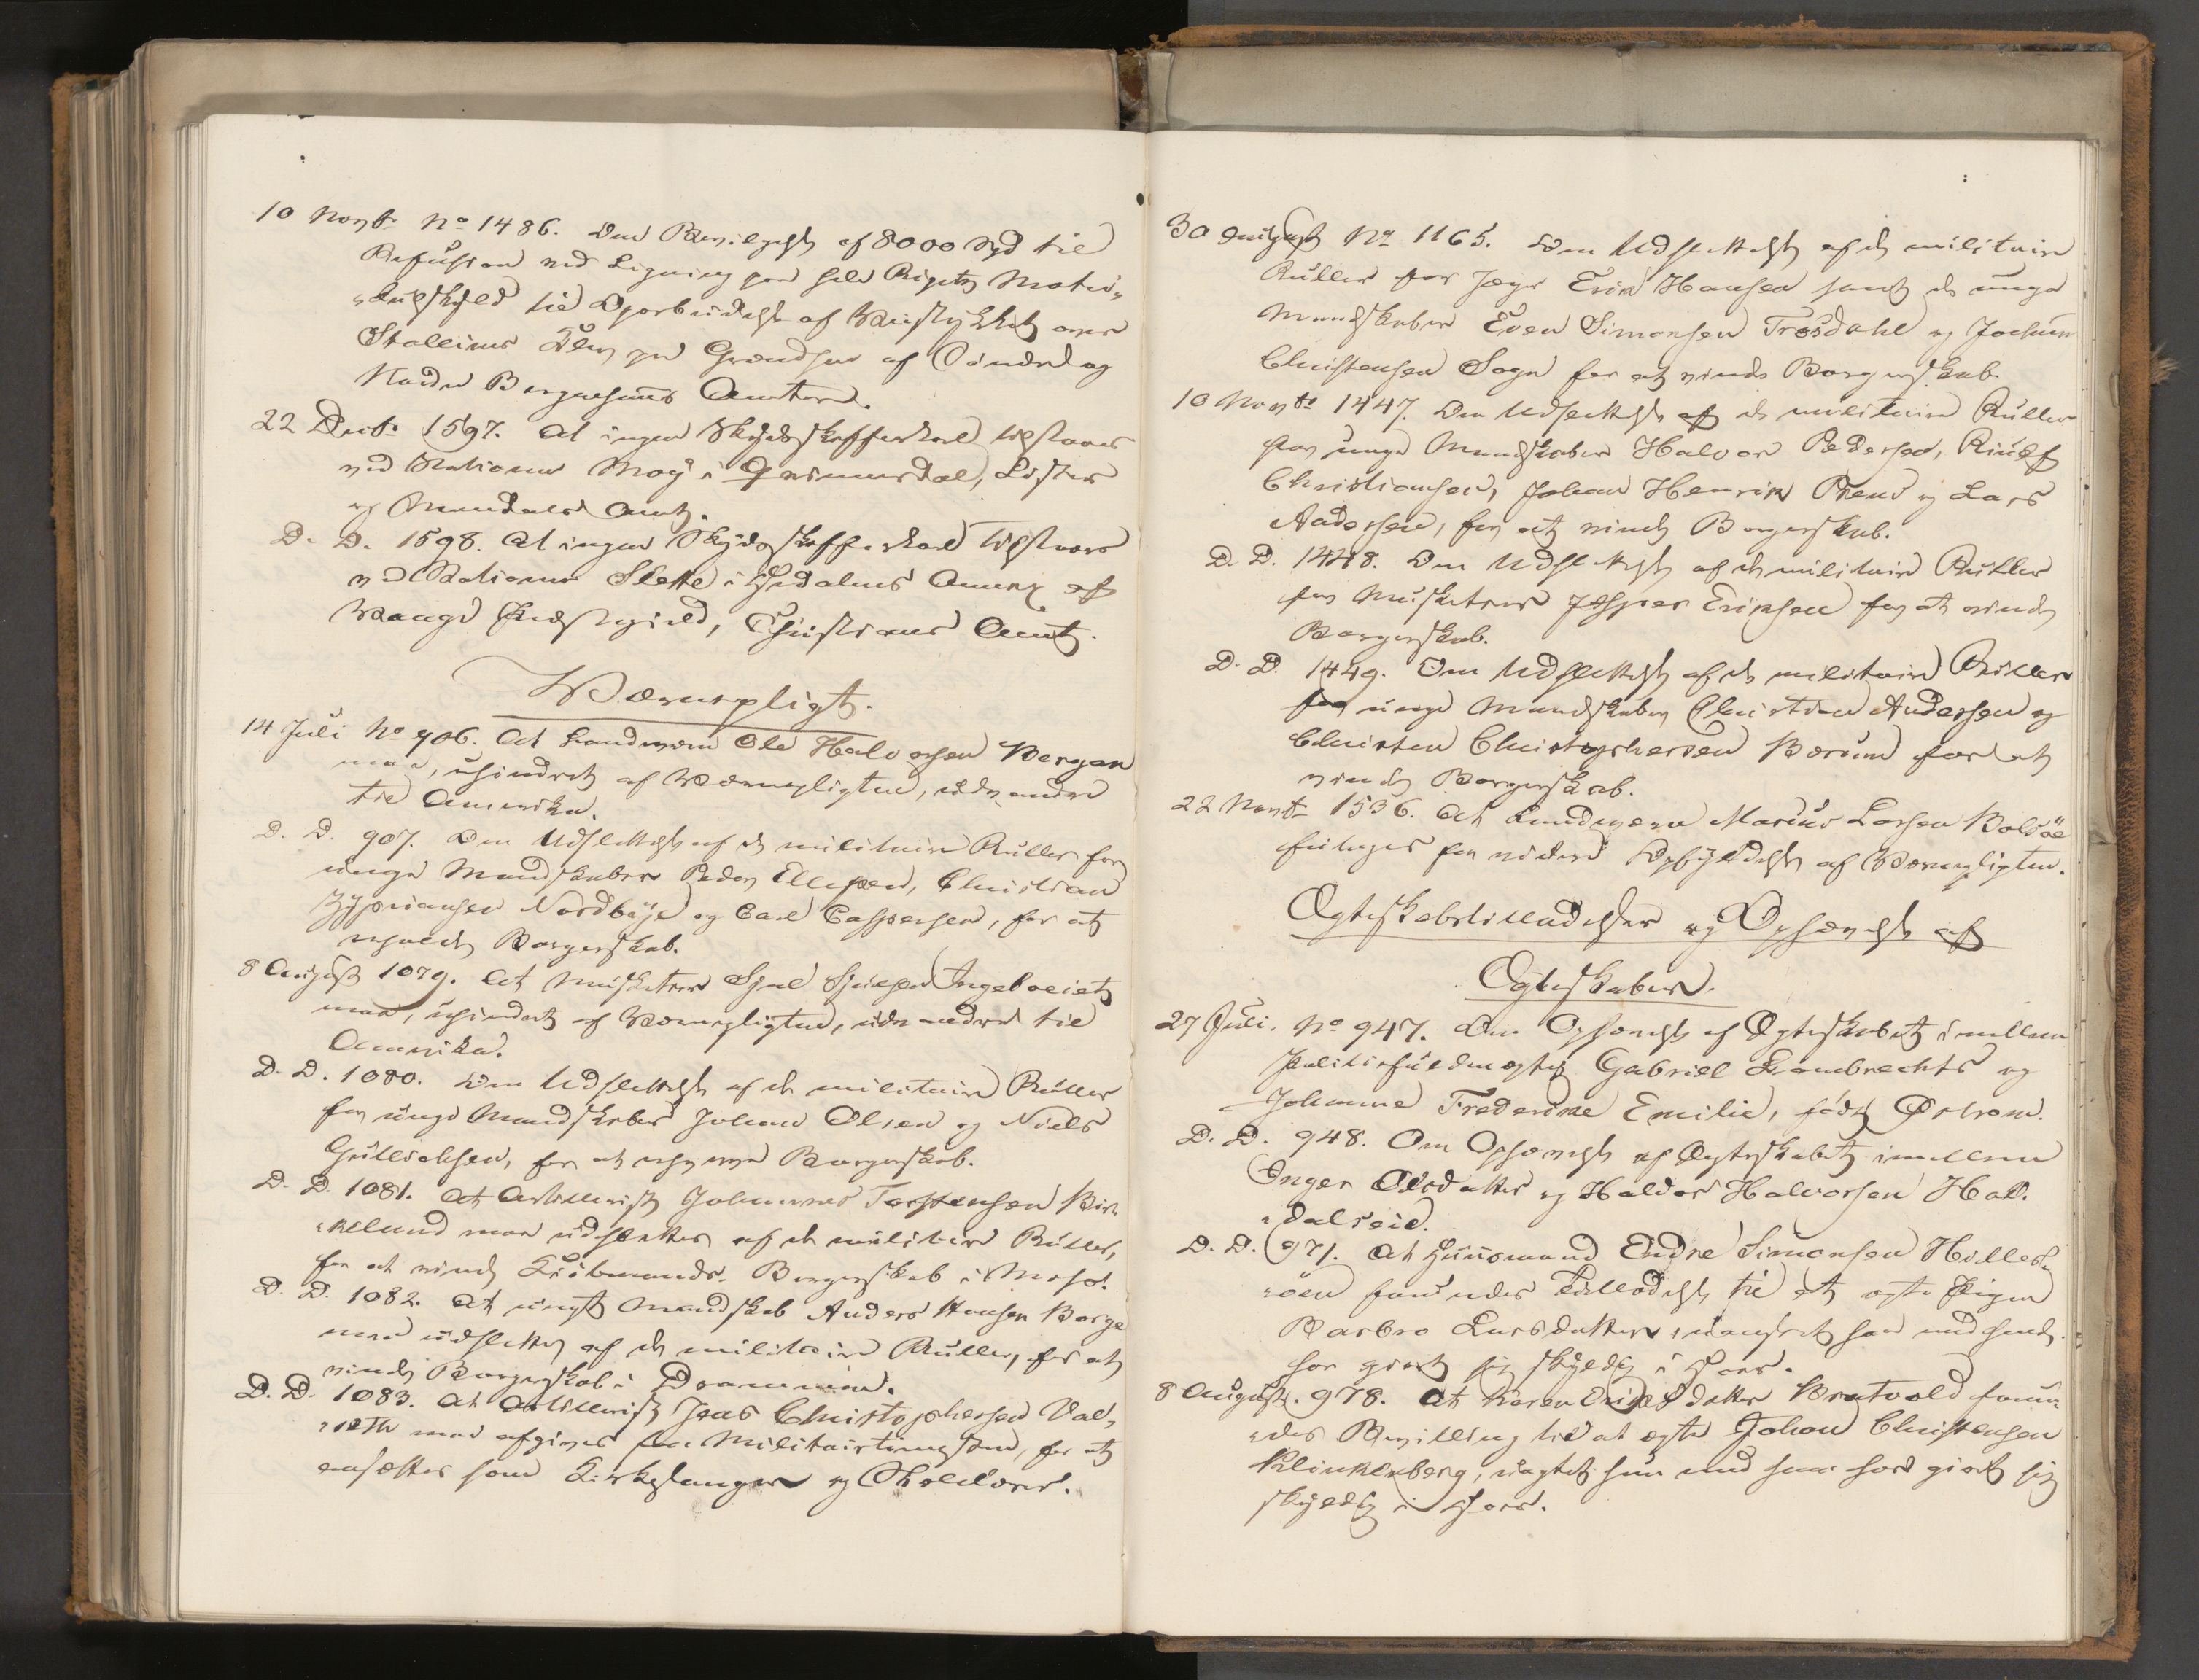 10 Novbr No 1486. Om Bevilgelse af 8000 Spd til
Refusion ved Ligning paa hele Rigets Matri-
-kulskyld til Oparbeidelse af Veistykket over
Stalleims Klev paa Grændsen af Søndre og
Nordre Bergenhuus Amter.
22 Decbr 1597. At ingen Skydsskafferkarl tilstaaes
ved Stationen Moy i Qvinesdal, Lister
og Mandals Amt.
D. D. 1598. At ingen Skydsskafferkarl tilstaaes
ved Stationen Slette i Hedalens Annex af
Vaage Præstegjeld, Christians Amt.
Værnepligt.
14 Juli No 906. At Landværn Ole Halvorsen Bergan
maa, uhindret af Værnepligten, udvandre
til Amerika.
D. D. 907. Om Udslettelse af de militaire Ruller for
unge Mandskaber Peder Ellefsen, Christian
Zypriansen Nordbye og Carl Caspersen, for at
erholde Borgerskab.
8 August 1079. At Musketeer Sjul Sjulsen Ingebreiets
maa, uhindret af Værnepligten, udvandre til
Amerika.
D. D. 1080. Om Udslettelse af de militaire Ruller
for unge Mandskaber Johan Olsen og Niels
Gulliksen, for at erhverve Borgerskab.
D. D. 1081. At Artillerist Johannes Torstensen Bir-
-keland maa udslettes af de militaire Ruller,
for at vinde Kjøbmands-Borgerskab i Moss.
D. D. 1082. At ungt Mandskab Anders Hansen Borge
maa udslettes af de militaire Ruller, for at
vinde Borgerskab i Drammen.
D. D. 1083. At Artillerist Jens Christophersen Val-
-seth maa afgives fra Militairtjenesten, for at
ansættes som Kirkesanger og Skolelærer.
30 August No 1165. Om Udslettelse af de militaire
Ruller for Jæger Erik Hansen samt de unge
Mandskaber Even Simonsen Trøsdahl og Jochum
Christensen Sogn for at vinde Borgerskab.
10 Novbr 1447. Om Udslettelse af de militaire Ruller
for unge Mandskaber Halvor Pedersen, Riulf
Christiansen, Johan Henrik Preus og Lars
Andersen, for at vinde Borgerskab.
D. D. 1448. Om Udslettelse af de militaire Ruller
for Musketeer Jesper Eriksen for at vinde
Borgerskab.
D. D. 1449. Om Udslettelse af de militaire Ruller
for unge Mandskaber Christian Andersen og
Christen Christophersen Bærum for at
vinde Borgerskab.
22 Novbr 1536. At Landværn Marius Larsen Bolsöe
fritages for videre Opfyldelse af Værnepligten.
Ægteskabstilladelser og Ophævelse af
Ægteskaber.
27 Juli. No 947. Om Ophævelse af Ægteskabet imellem
Politifuldmægtig Gabriel Lambrechts og
Johanne Frederikke Emilie, født Østrom.
D. D. 948. Om Ophævelse af Ægteskabet imellem
Inger Olsdatter og Haldor Halvorsen Hal-
-dalseid.
D. D. 971. At Huusmand Endre Simonsen Hilles-
-øen forundes Tilladelse til at ægte Pigen
Barbro Larsdatter, uanseet han med hende
har gjort sig skyldig i Hoer.
8 August. 978. At Karen Eriksdatter Bratvold forun-
-des Bevilling til at ægte Johan Christensen
Klinkenberg, uagtet hun med ham har gjort sig
skyldig i Hoer.